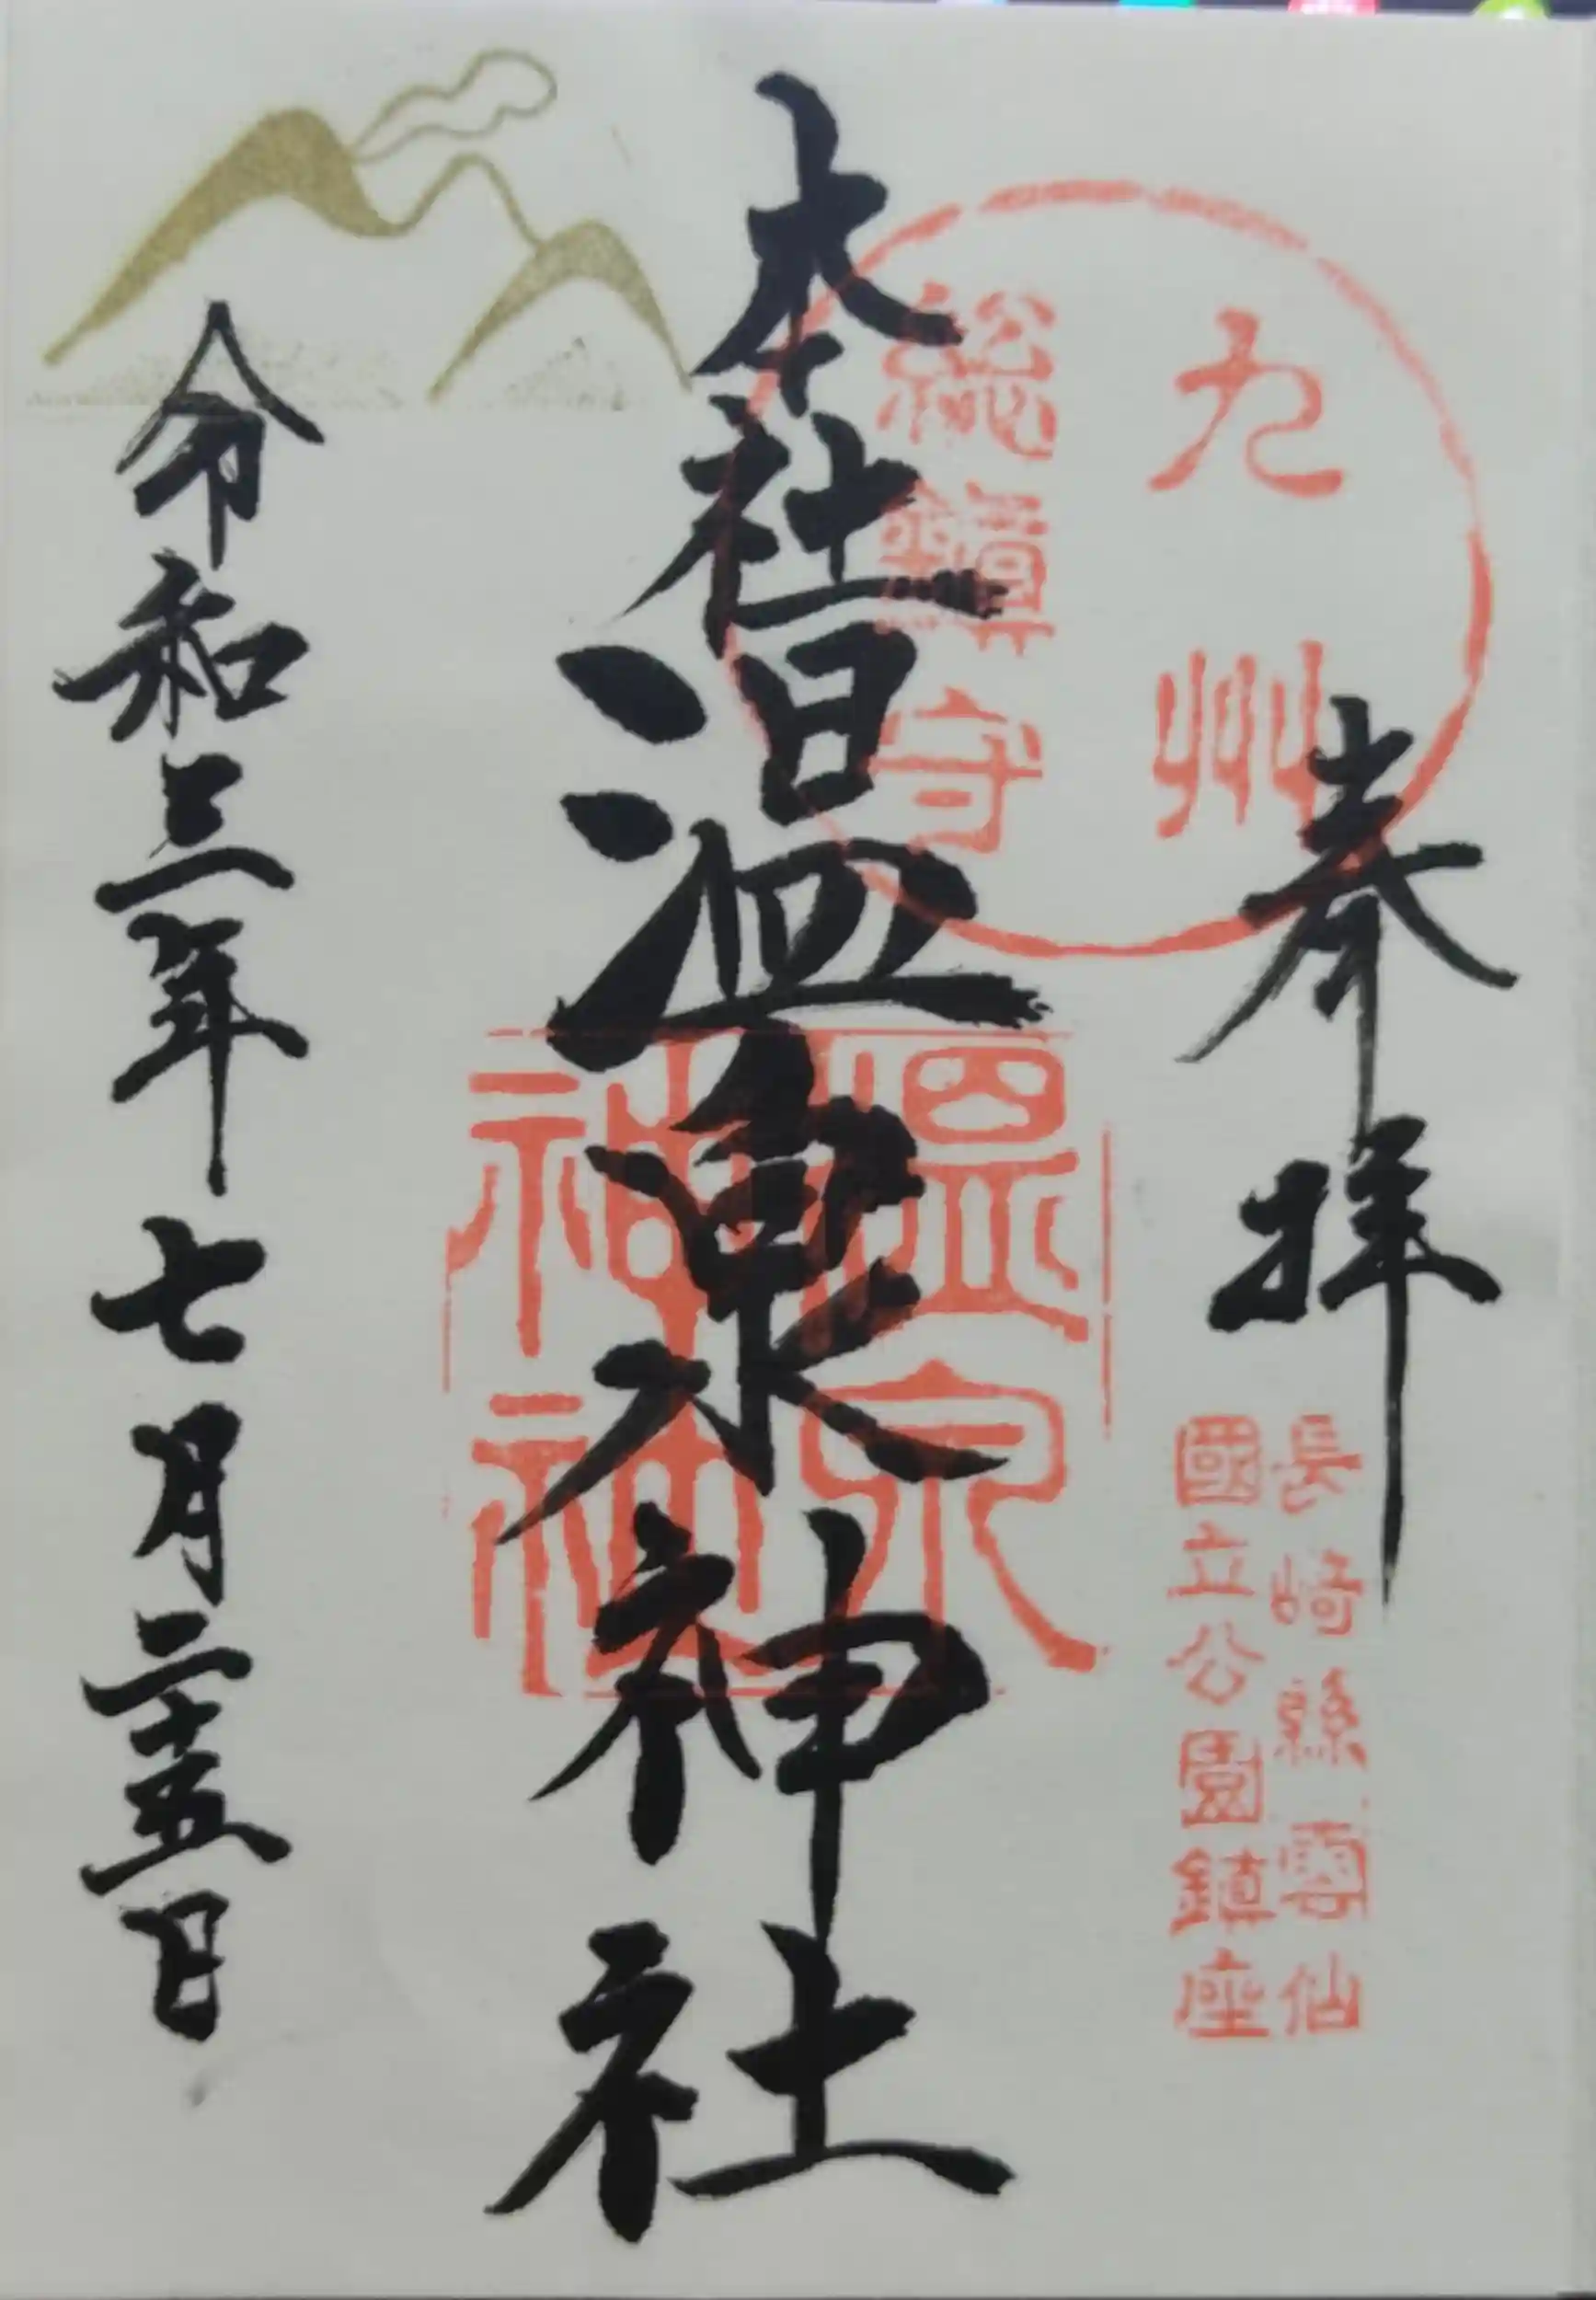 奉拝
長崎縣雲仙
國立公園鎮座
九州
総鎮守
本社温泉神社
温泉
神社
令和三年七月二十五日